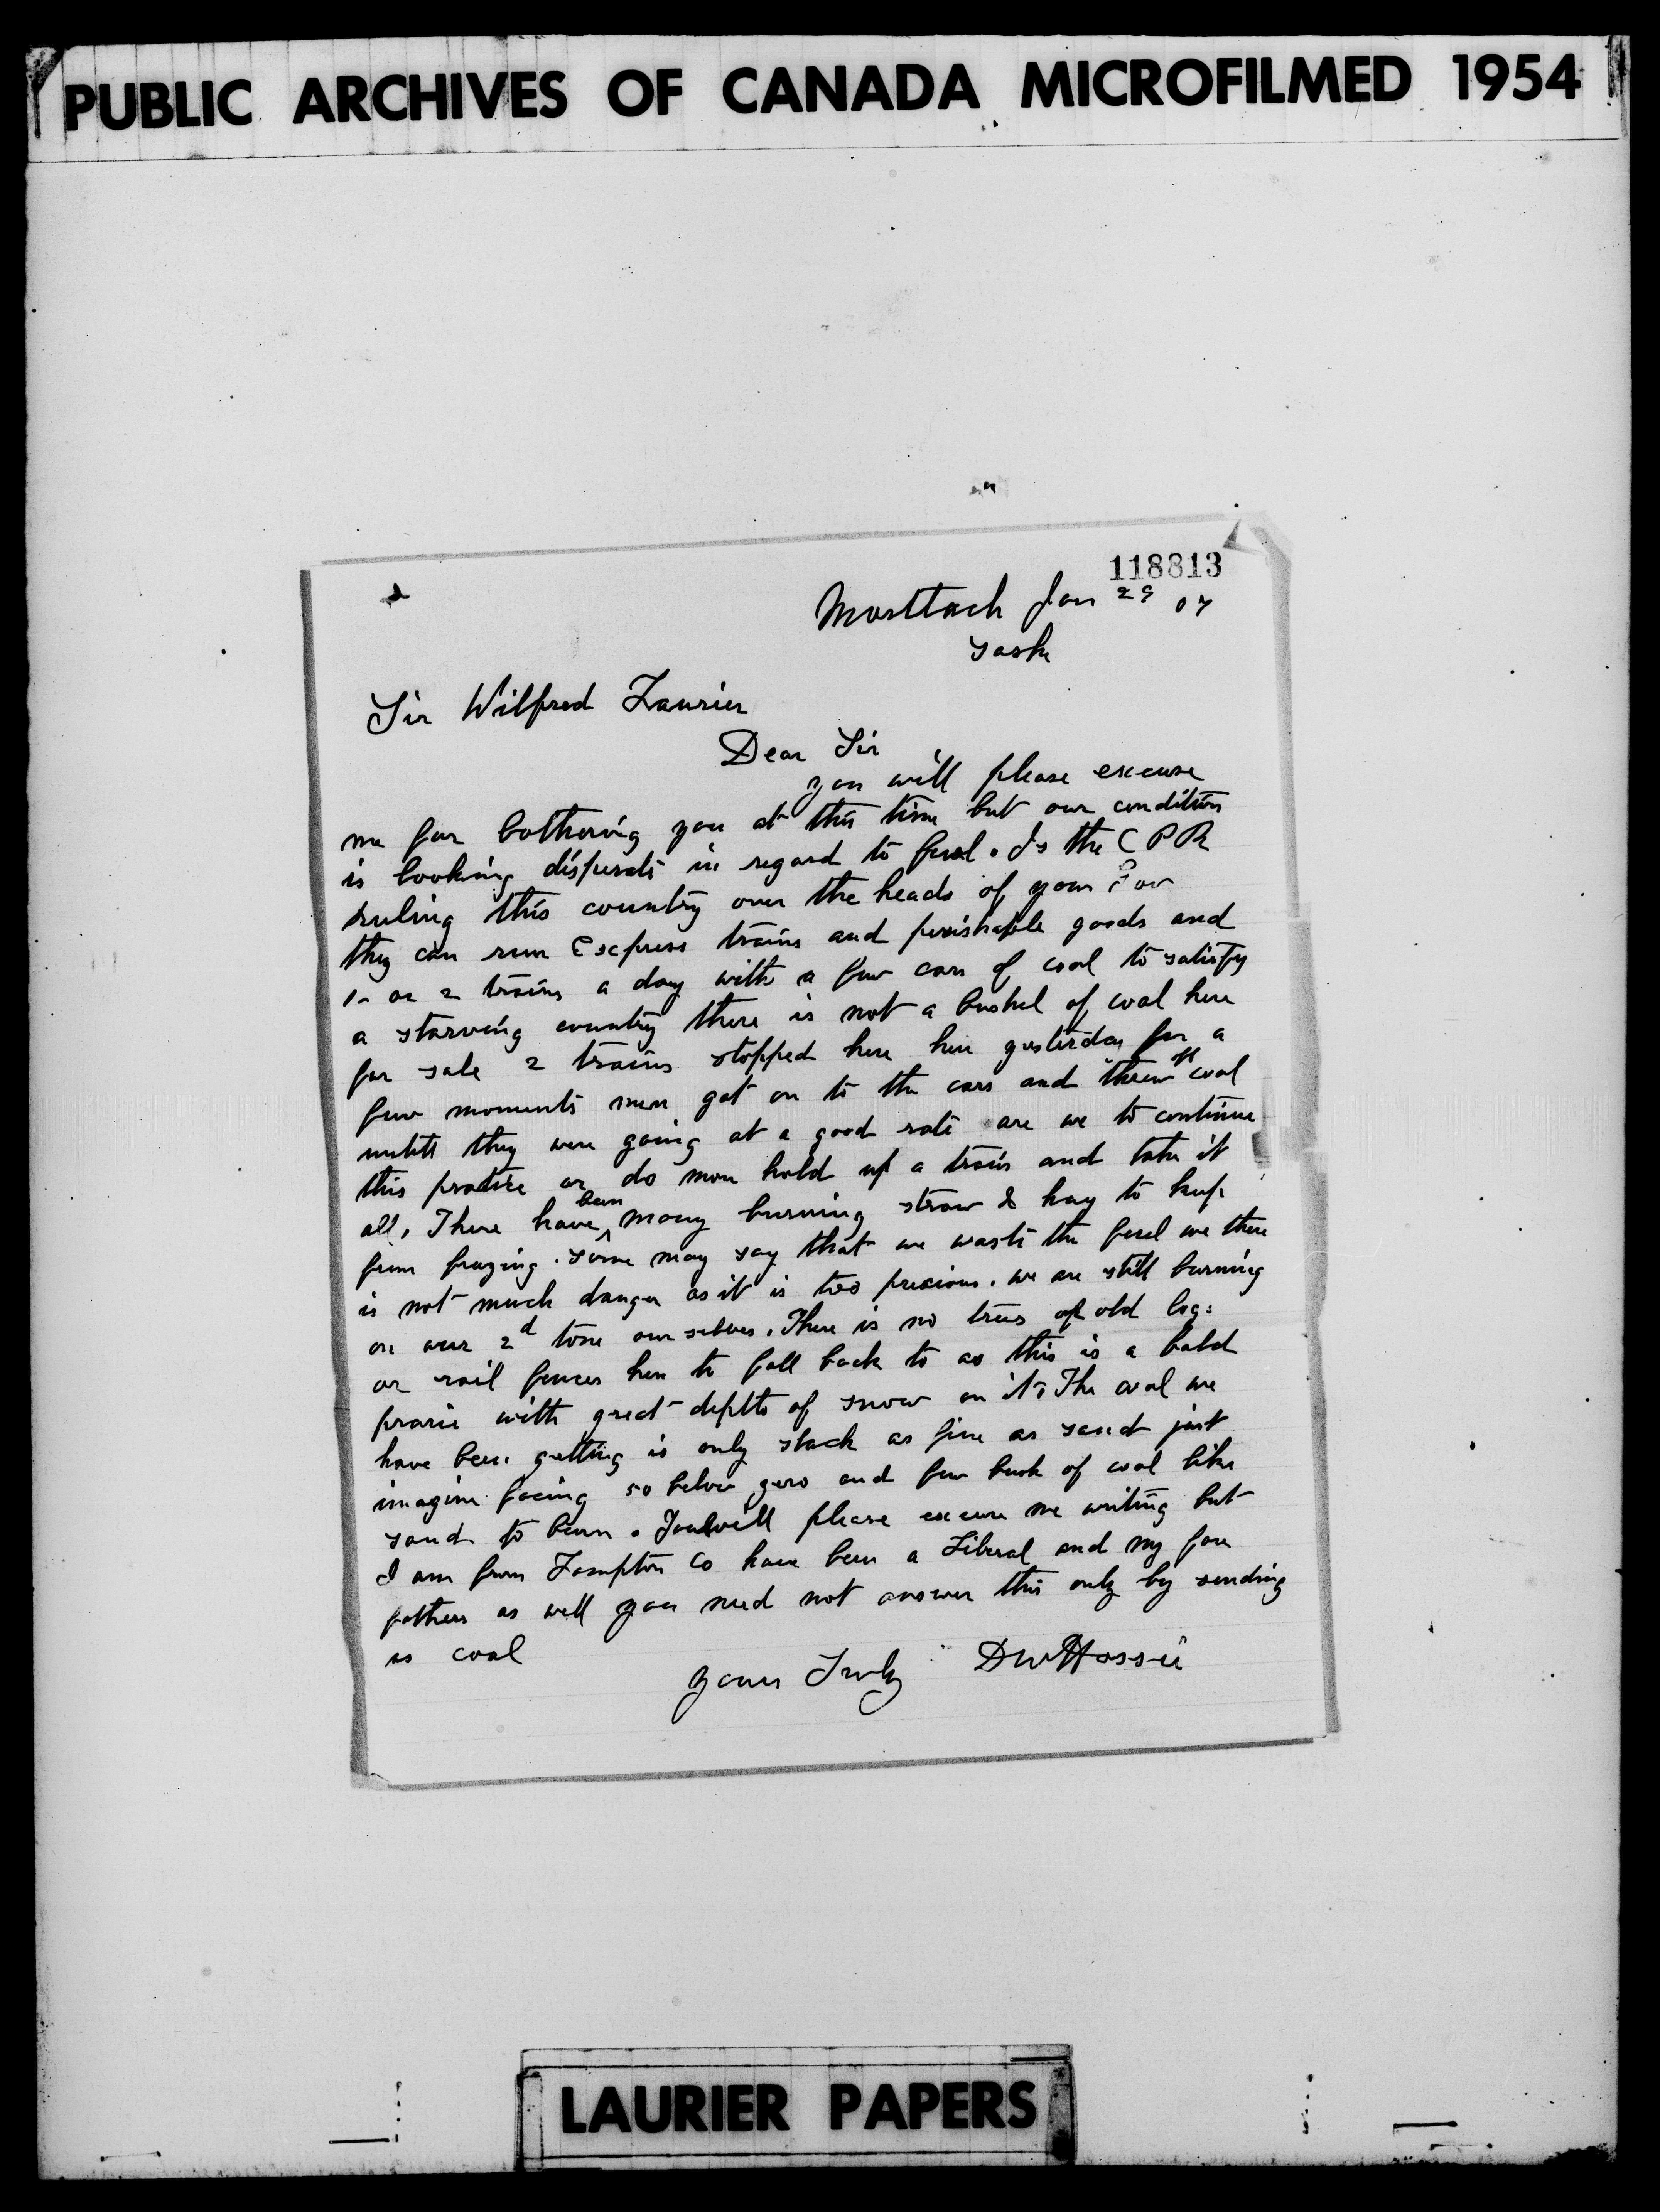 PUBLIC ARCHIVES OF CANADA MICROFILMED 1954
118813
Morttach Jan 29 07
Sask
Sir Wilfred Laurier
Dear Sir
you will please excuse
me for bothering you at this time but our condition
is looking disperate in regard to fuel. Is the CPR
ruling this country over the heads of your Gov
they can run Express trains and perishable goods and
1 or 2 trains a day with a few cars of coal to satisfy
a starving country there is not a bushel of coal here
for sale 2 trains stopped here here yesterday for a
few moments men got on to the cars and threw off coal
untill they were going at a good rate are we to continue
this practice or do more hold up a train and take it
all, There have been many burning straw & hay to keep
from frazing. Some may say that we waste the fuel we there
is not much danger as it is too precious. we are still burning
on our 2d tone our selves. There is no trees of old logs
or rail fences here to fall back to as this is a bald
prarie with great depths of snow on it, The coal we
have been getting is only slack as fine as sand just
imagine facing 50 below zero and few bush of coal like
sand to burn. You will please excuse me writing but
I am from Lampton Co have been a Liberal and my fore
fathers as well you need not answer this only by sending
us coal
yours Truly DW Hossie
LAURIER PAPERS